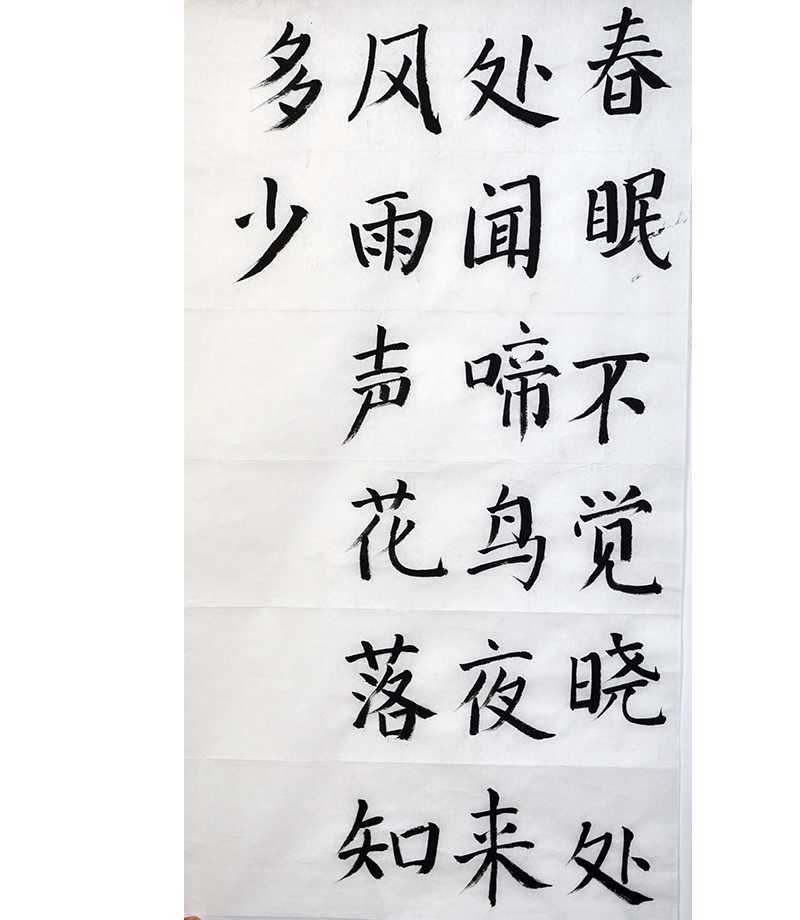 春眠不觉晓处
处闻啼鸟夜来
风雨声花落知
多少